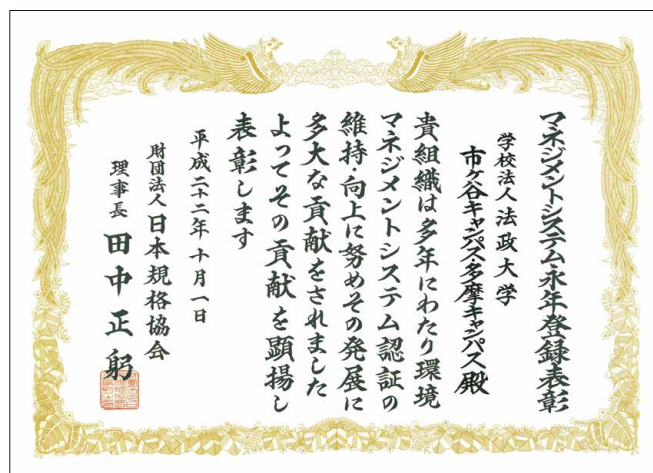 マネジメントシステム永年登録表彰
学校法人法政大学
市ケ谷キャンパス・多摩キャンパス殿
貴組織は多年にわたり環境
マネジメントシステム認証の
維持・向上に努めその発展に
多大な貢献をされました
よってその貢献を顕揚し
表彰します
平成二十二年十月一日
財団法人日本規格協会
理事長 田中正躬